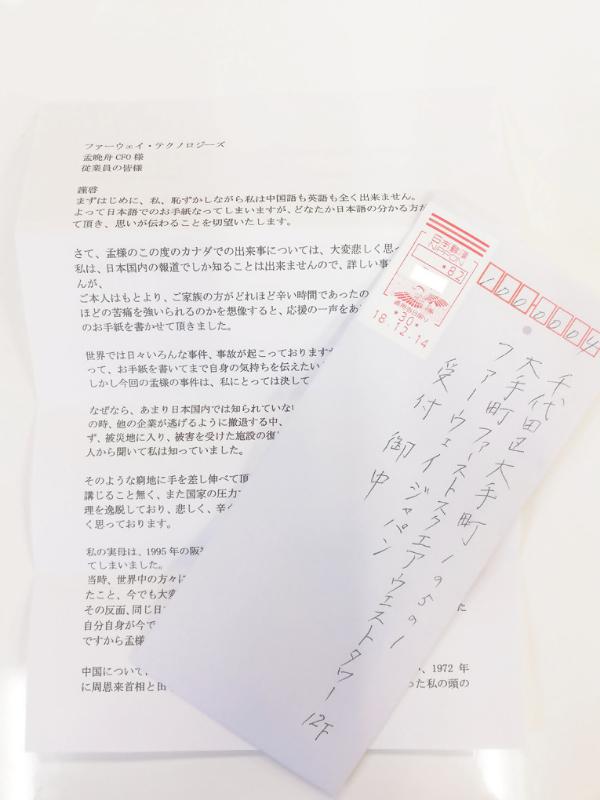 ファーウェイ・テクノロジーズ
孟晩舟 CFO 様
従業員の皆様
謹啓
まずはじめに、私、恥ずかしながら私は中国語も英語も全く出来ません。
よって日本語でのお手紙なってしまいますが、どなたか日本語の分かる方
て頂き、思いが伝わることを切望いたします。
さて、孟様のこの度のカナダでの出来事については、大変悲しく思
私は、日本国内の報道でしか知ることは出来ませんので、詳しい事
んが、
ご本人はもとより、ご家族の方がどれほど辛い時間であったの
ほどの苦痛を強いられるのかを想像すると、応援の一声をあ
のお手紙を書かせて頂きました。
世界では日々いろんな事件、事故が起こっております
って、お手紙を書いてまで自身の気持ちを伝えたい
しかし今回の孟様の事件は、私にとっては決して
なぜなら、あまり日本国内では知られていな
の時、他の企業が逃げるように撤退する中、
ず、被災地に入り、被害を受けた施設の復
人から聞いて私は知っていました。
そのような窮地に手を差し伸べて頂
講じること無く、また国家の圧力
理を逸脱しており、悲しく、辛
く思っております。
私の実母は、1995 年の阪
てしまいました。
当時、世界中の方々に
たこと、今でも大変
その反面、同じ日
自分自身が今で
ですから孟様
中国について、 、1972 年
に周恩来首相と田 った私の頭の
日本郵便
NIPPON
*82
*30*
18.12.14
1000004
千代田区大手町1-5-1
大手町ファーストスクエアウエストタワー12F
ファーウェイジャパン
受付 御中